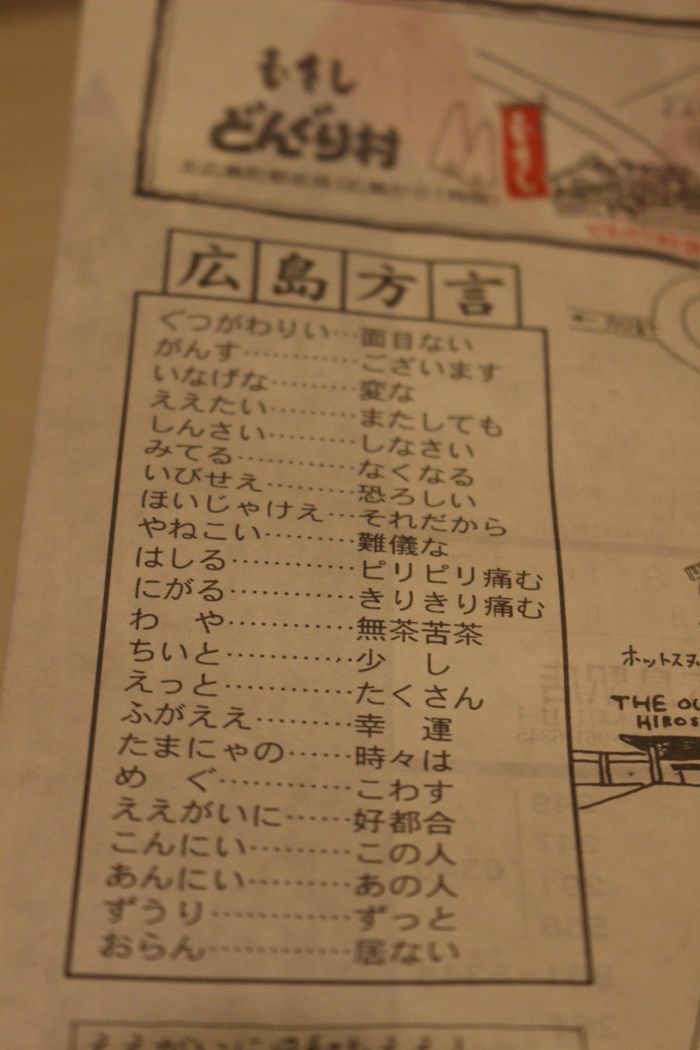 むさし
どんぐり村
むさし
広島方言
ぐつがわりい…面目ない
がんす…………ございます
いなげな………変な
ええたい………またしても
しんさい………しなさい
みてる…………なくなる
いびせえ………恐ろしい
ほいじゃけえ…それだから
やねこい………難儀な
はしる…………ピリピリ痛む
にがる…………きりきり痛む
わ　や…………無茶苦茶
ちいと…………少　し
えっと…………たくさん
ふがええ………幸　運
たまにゃの……時々は
め　ぐ…………こわす
ええがいに……好都合
こんにい………この人
あんにい………あの人
ずうり…………ずっと
おらん…………居ない
ホットスタ
THE OU
HIROS